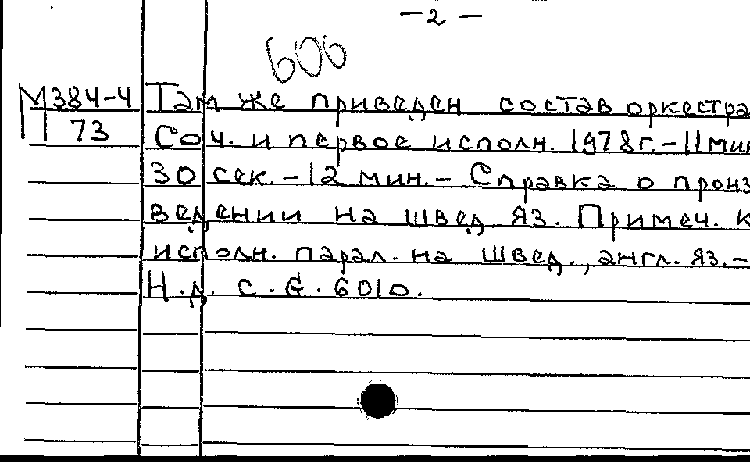 - 2 -
606
М384-4 Там же приведен состав оркестра
73 Соч. и первое исполн. 1978г.-11мин
30 сек.-12 мин.- Справка о произ
ведении на швед. яз. Примеч. к
исполн. парал. на швед., англ. яз.-
Н.д. с. G. 6010.